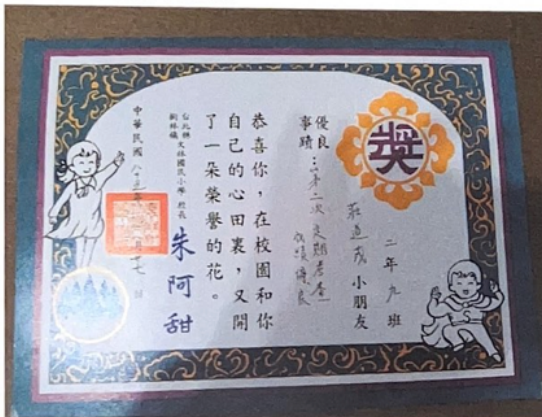 獎
二年九班
莊道茂 小朋友
優良
事蹟：第二次定期考查
成績優良
恭喜你，在校園和你
自己的心田裏，又開
了一朵榮譽的花。
台北縣
樹林鎮 文林國民小學 校長 朱阿甜
中華民國八十五年 月廿七日